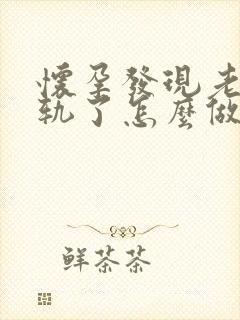 懷孕發現老
軌了怎麼做
鮮茶茶